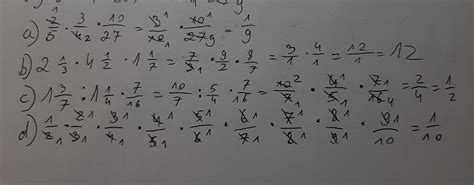 a) 2/5 · 3/12 · 10/27 = 3¹/12₁ · 10¹/27₉ = 1/9
b) 2 1/3 · 4 1/2 · 1 1/7 = 7/3₁ · 9/2 · 8/7 = 3/1 · 4/1 = 12/1 = 12
c) 1 3/7 : 1 1/4 · 7/16 = 10/7 : 5/4 · 7/16 = 10²/7₁ · 4¹/5₁ · 7¹/16₄ = 2/4 = 1/2
d) 1/2₁ · 2¹/3₁ · 3¹/4₁ · 4¹/5₁ · 5¹/6₁ · 6¹/7₁ · 7¹/8₁ · 8¹/9₁ · 9¹/10 = 1/10